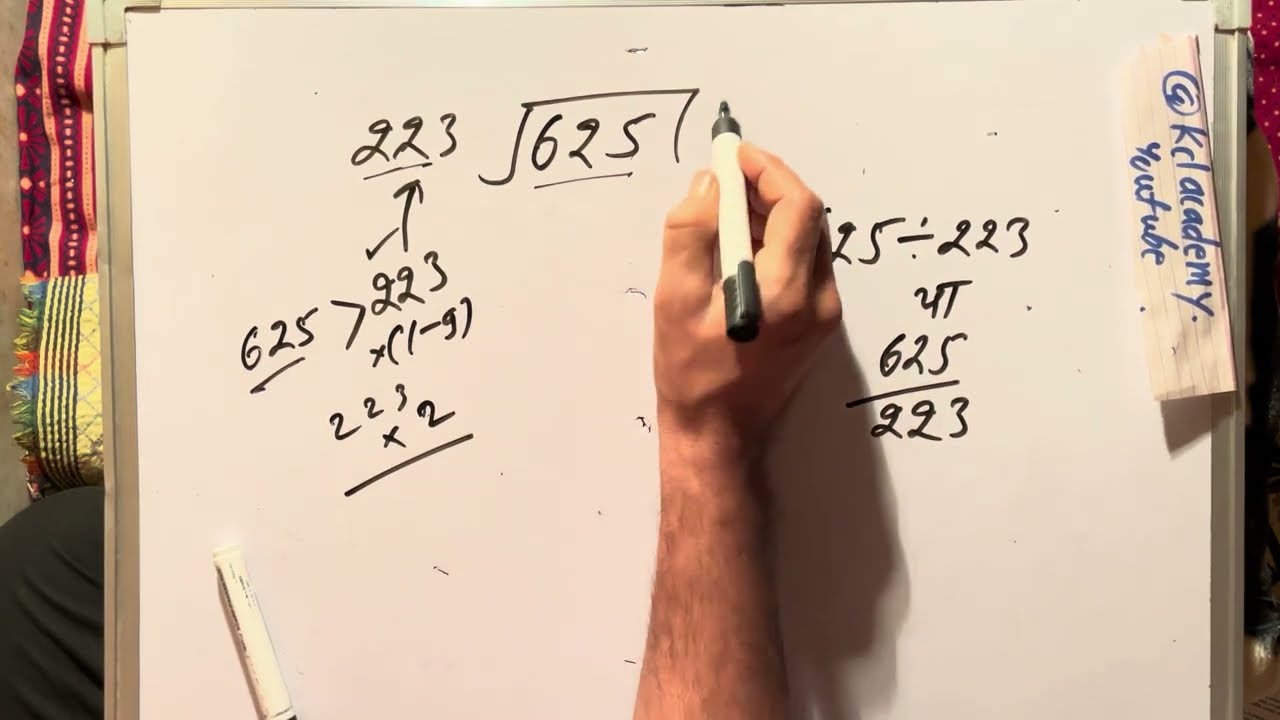 223 √625(
25÷223
223
या
625 >
×(1-9)
625
223
223
× 2
@Kclacademy.
Youtube